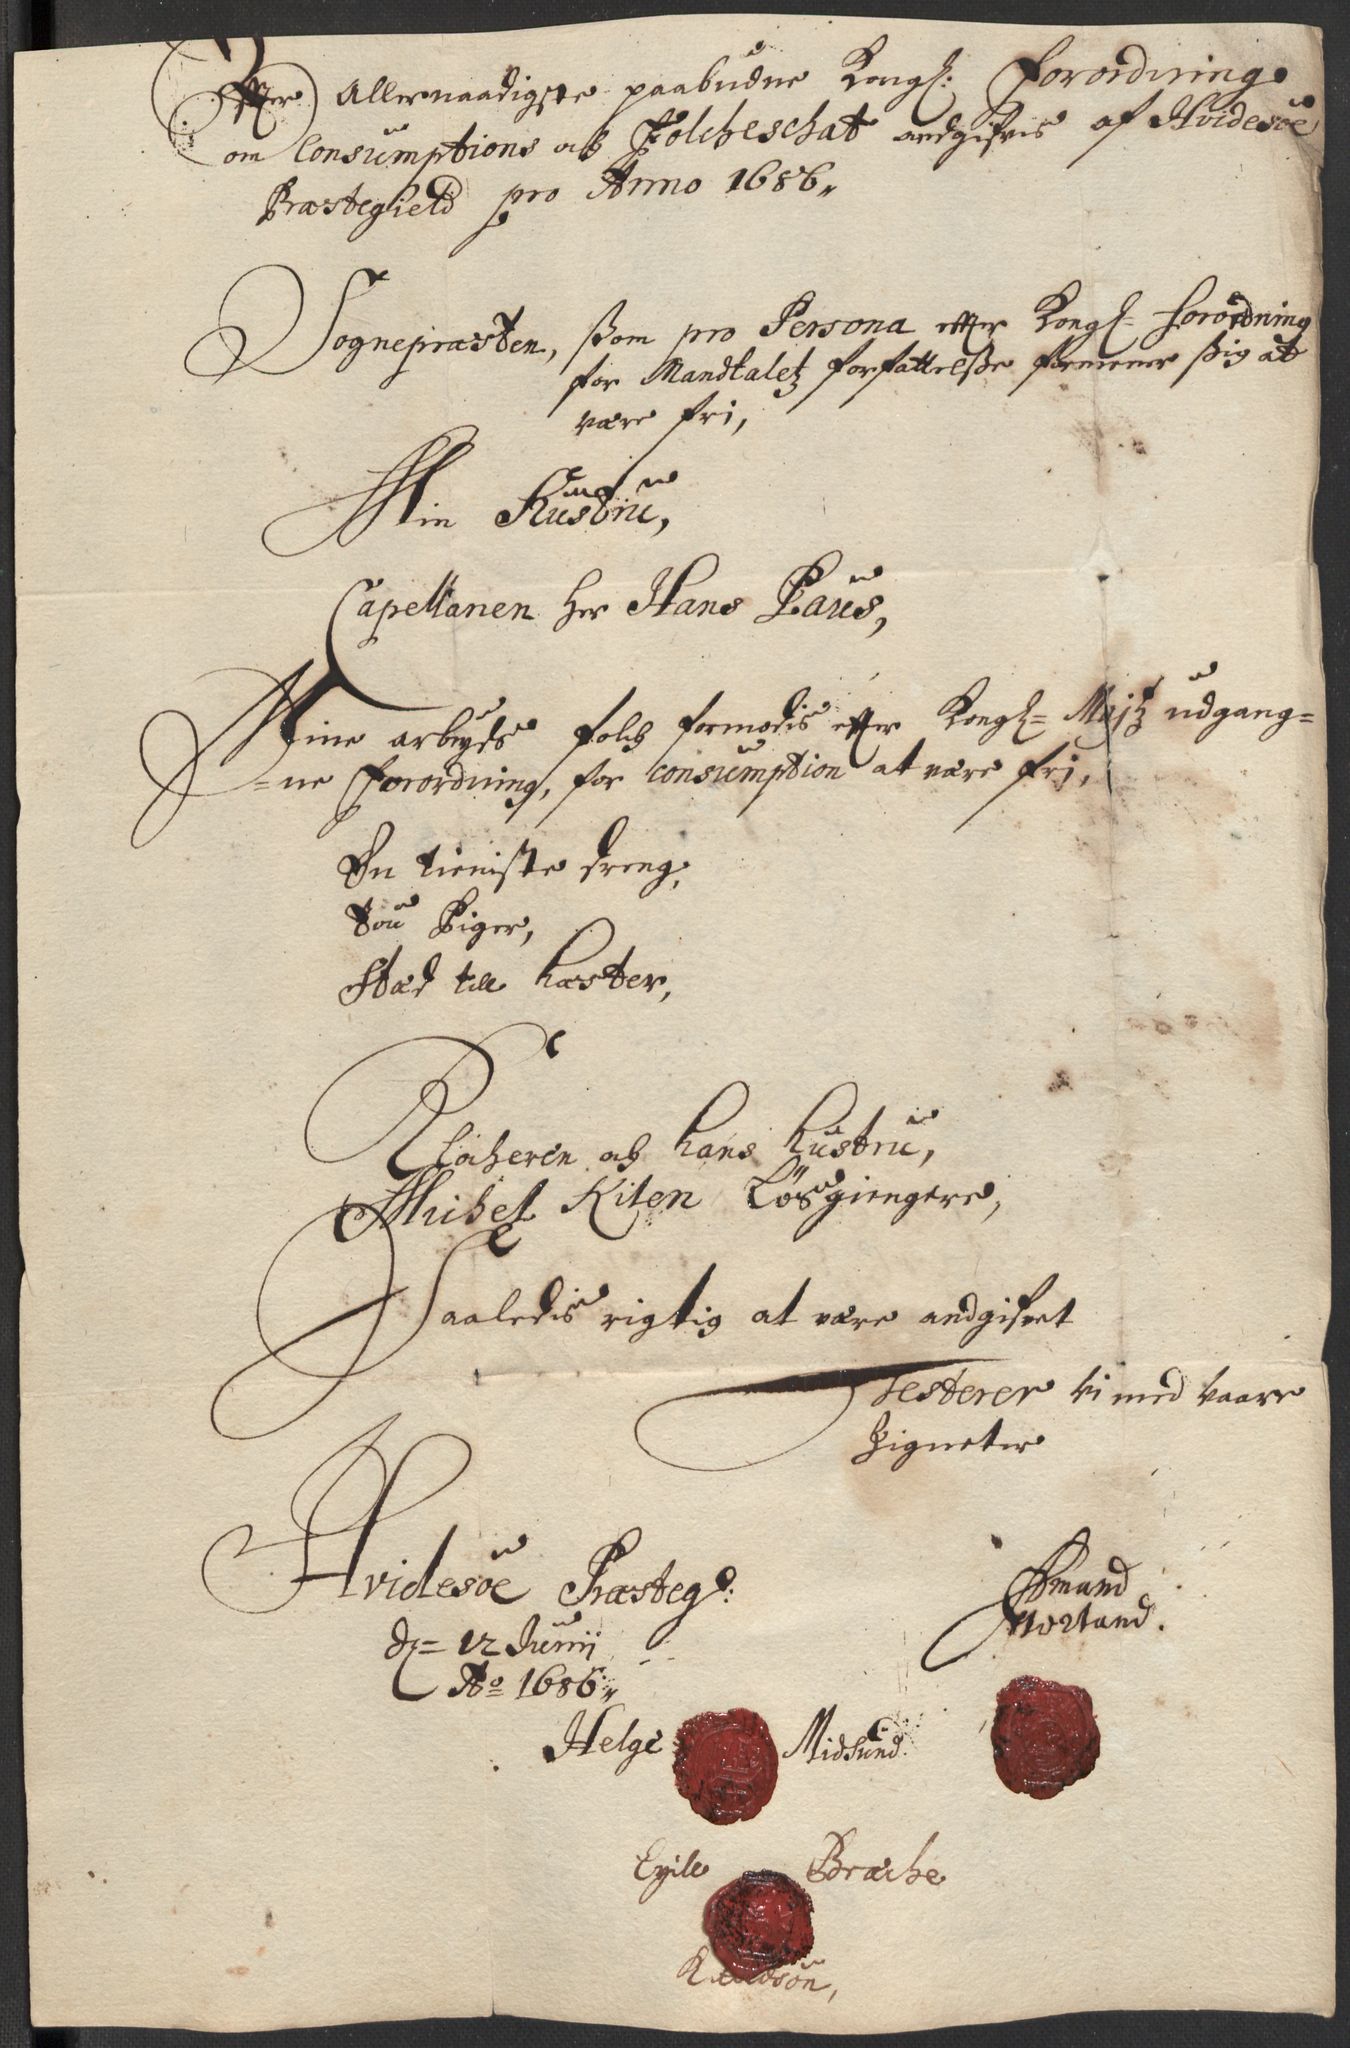 Effter Allernaadigste paabudne Kongl: Forordning
om Consumptions och Folcheschat andgifvis af Hvidesöe
Præstegield pro Anno 1686,,
Sognepræsten, ßom pro Persona effter Kongl= Forordning
for Mandtaletz forfattelße formener ßig at
være fri,
Min Hüstrü,
Capellanen her Hans Paüs,
Mine arbeyds folch formodis effter Kongl= Majtz udgang=
=ne Forordning, for consumption at være fri,
En tieniste dreng,
Tou Piger,
Stæd till hæster,
Klocheren och hans hüstrü,
Michel Kiten Lösgiengere,
Saaledis rigtig at være andgifvet
Testerer Vi med vaare
Zigneter
Hvidesöe Præstegd:
d= 12 Junij
Ao 1686,,
Amund
Morland.
Helge Midsund.
Egile Bræche
Knudsön,